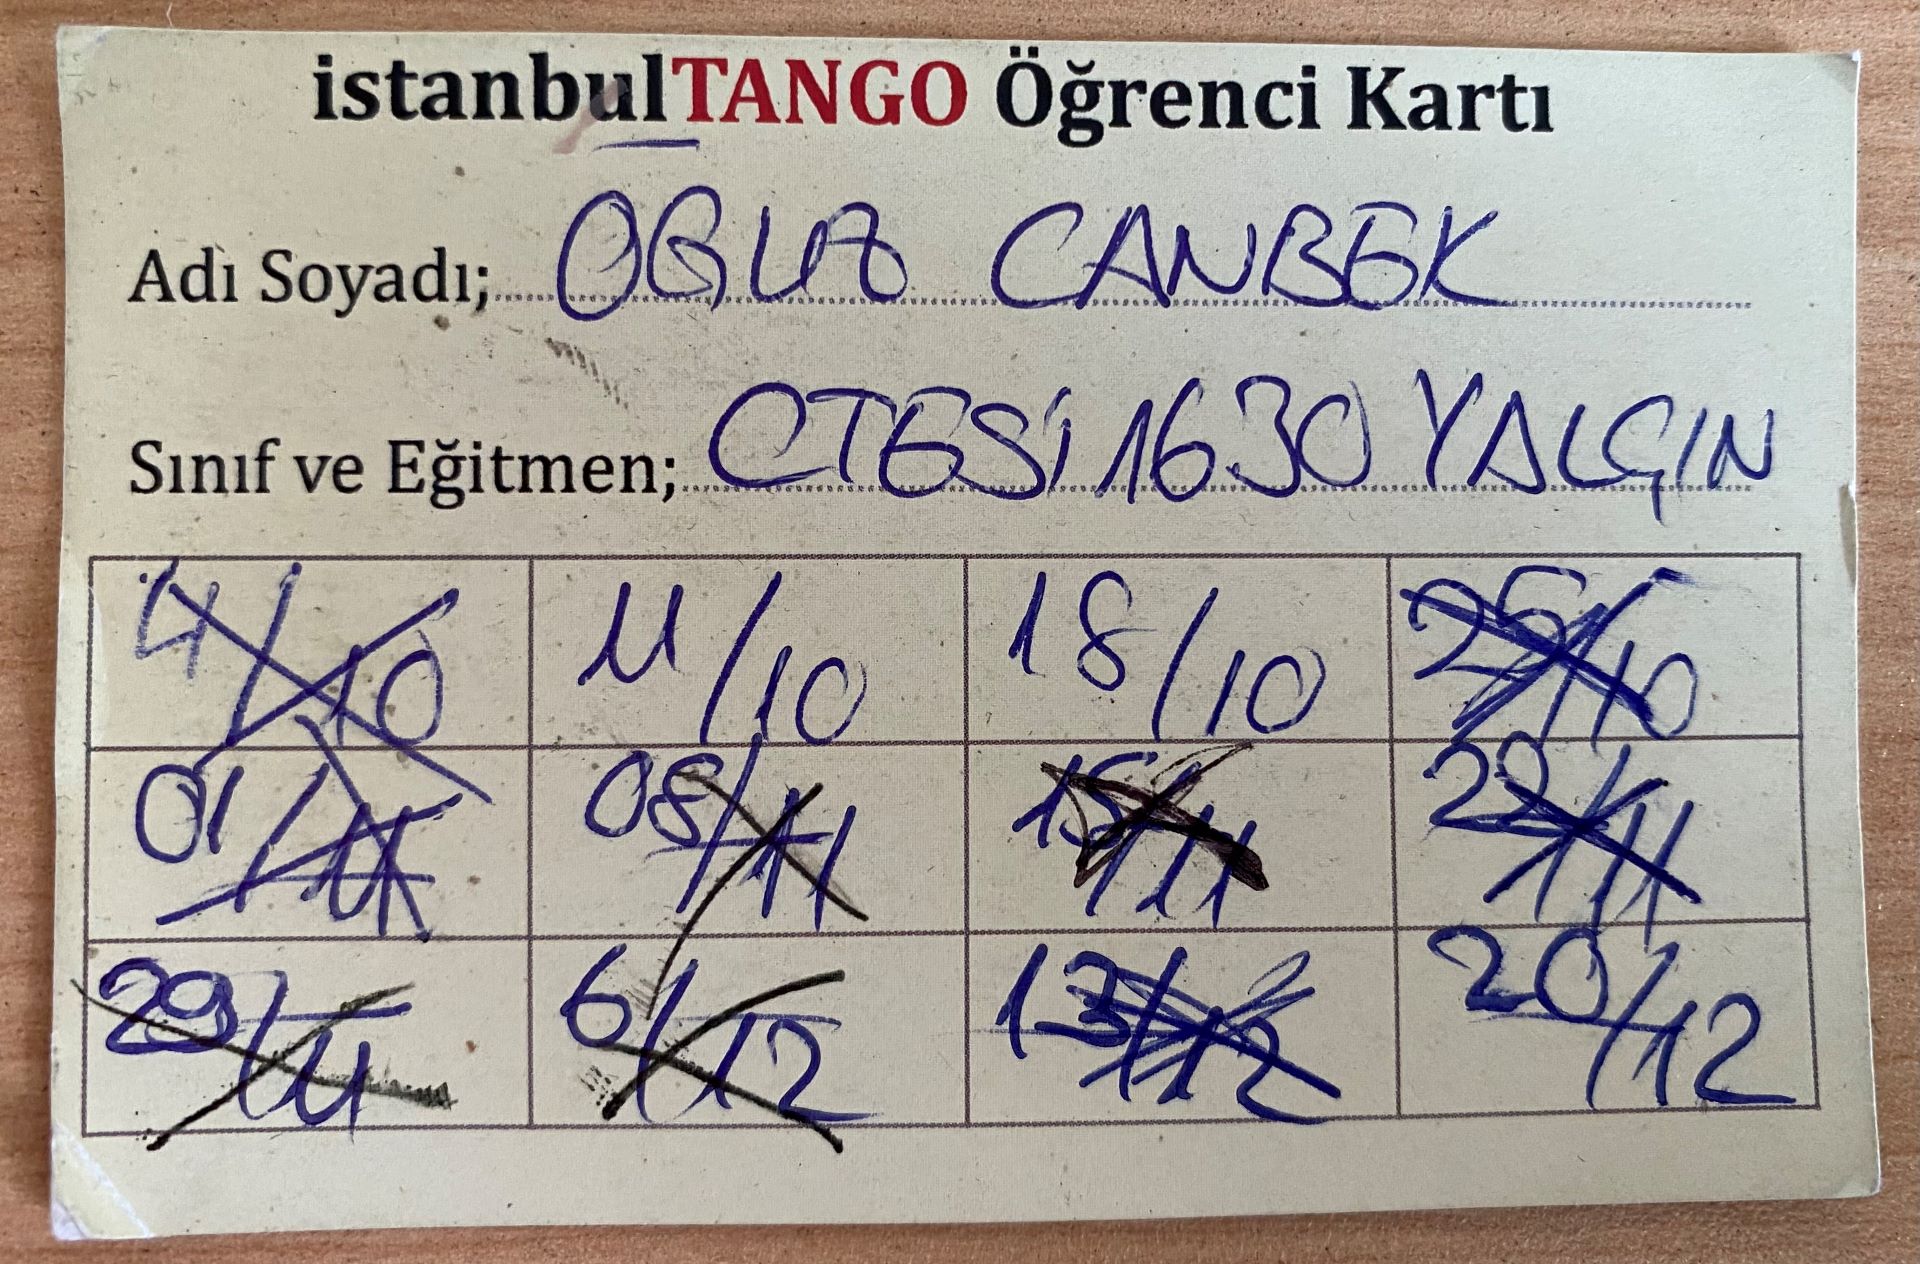 istanbulTANGO Öğrenci Kartı
Adı Soyadı; OĞUZ CANBEK
Sınıf ve Eğitmen; CTESİ 1630 YALÇIN
4/10 11/10 18/10 25/10
01/11 08/11 15/11 22/11
29/11 6/12 13/12 20/12